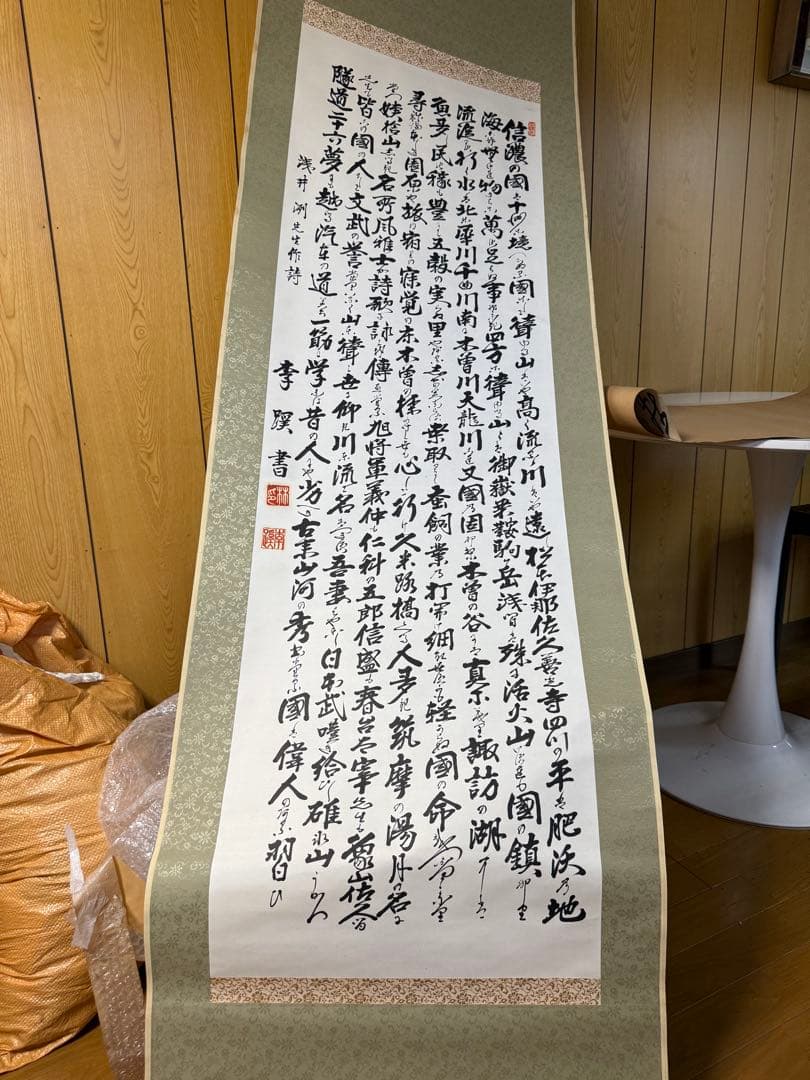 信濃の國は十州に境つらぬる國にして聳ゆる山はいや高く流るる川はいや遠し松本伊那佐久善光寺四つの平は肥沃の地
海こそなけれ物さわに萬足らはぬ事ぞなき四方に聳ゆる山々は御嶽乗鞍駒ヶ岳浅間は殊に活火山いづれも國の鎮めなり
流れ淀まず行く水は北に犀川千曲川南に木曽川天龍川これ又國の固めなり木曽の谷には真木茂り諏訪の湖には
魚多し民の稼ぎも豊かにて五穀の実らぬ里やあるしかのみならず桑取りて蚕飼の業の打開け細きよすがも軽からぬ國の命を繋ぐなり
尋ねまほしき園原や旅の宿りの寐覚の床木曽の棧かけし世も心して行け久米路橋くる人多き筑摩の湯月の名に
立つ姨捨山しるき名所と風雅士が詩歌に詠てぞ傳へたる旭将軍義仲も仁科の五郎信盛も春台太宰先生も象山佐久間
先生も皆此國の人にして文武の誉たぐひなく山と聳えて世に仰ぎ川と流れて名は尽ず吾妻はやとし日本武嘆き給ひし碓氷山うがつ
隧道二十六夢にも越ゆる汽車の道みち一筋に学びなば昔の人にや劣るべき古来山河の秀でたる國は偉人のある習ひ
浅井洌先生作詩
李蹊書